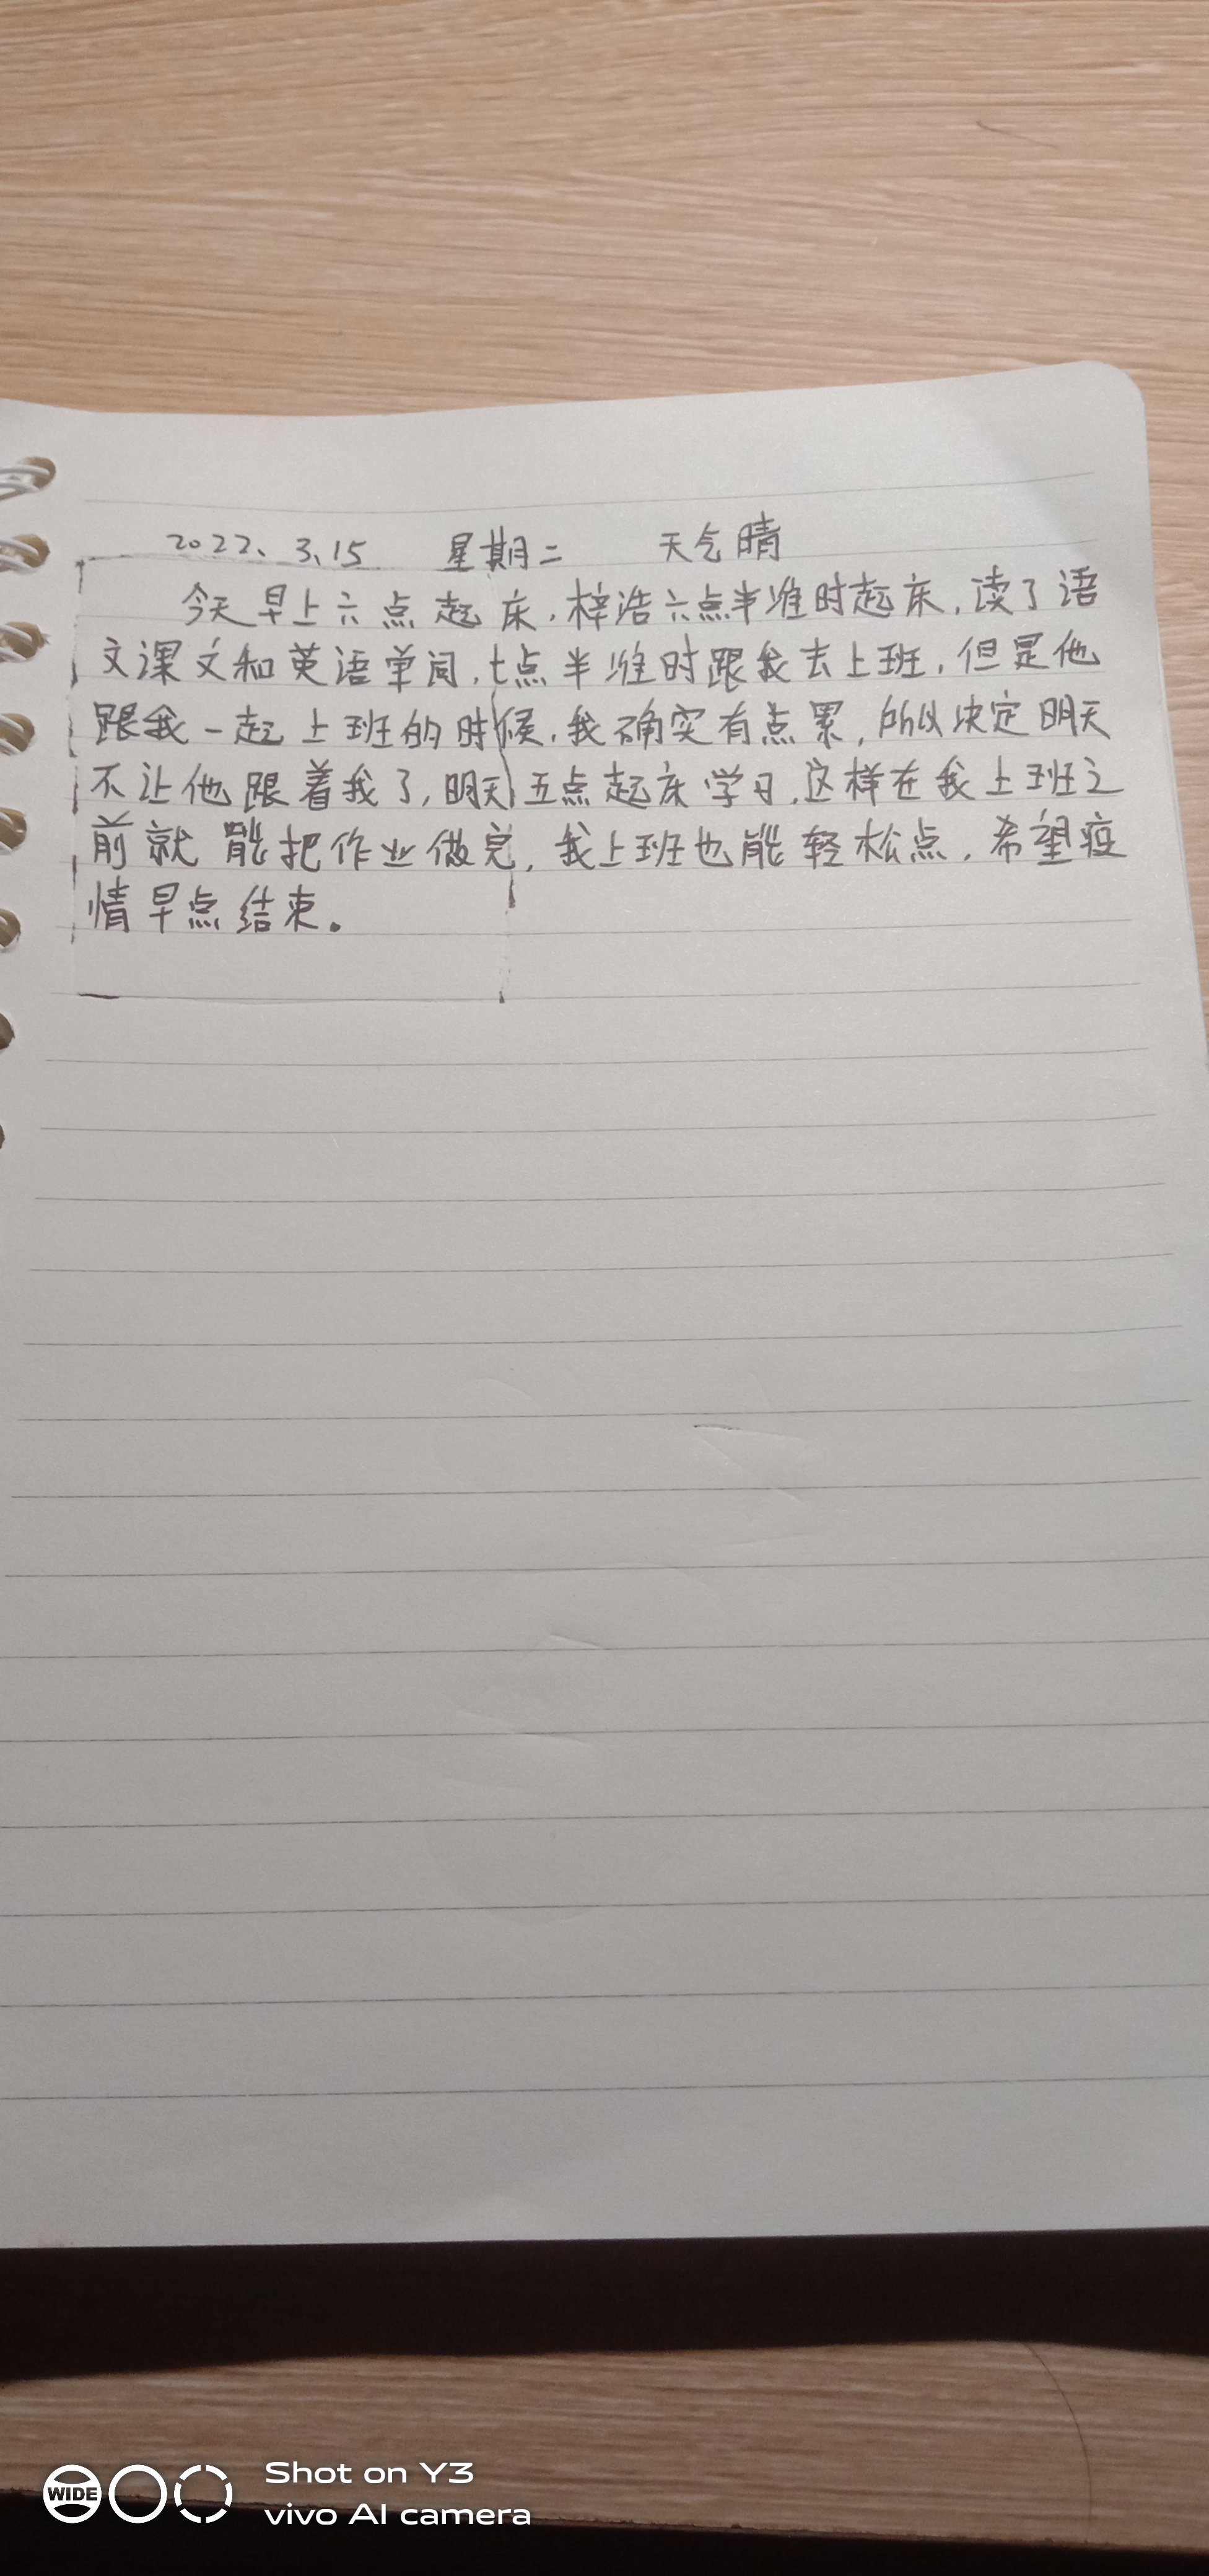 2022、3、15 星期二 天气晴
今天早上六点起床,梓浩六点半准时起床,读了语
文课文和英语单词,七点半准时跟我去上班,但是他
跟我一起上班的时候,我确实有点累,所以决定明天
不让他跟着我了,明天五点起床学习,这样在我上班之
前就能把作业做完,我上班也能轻松点,希望疫
情早点结束。
WIDE
Shot on Y3
vivo AI camera